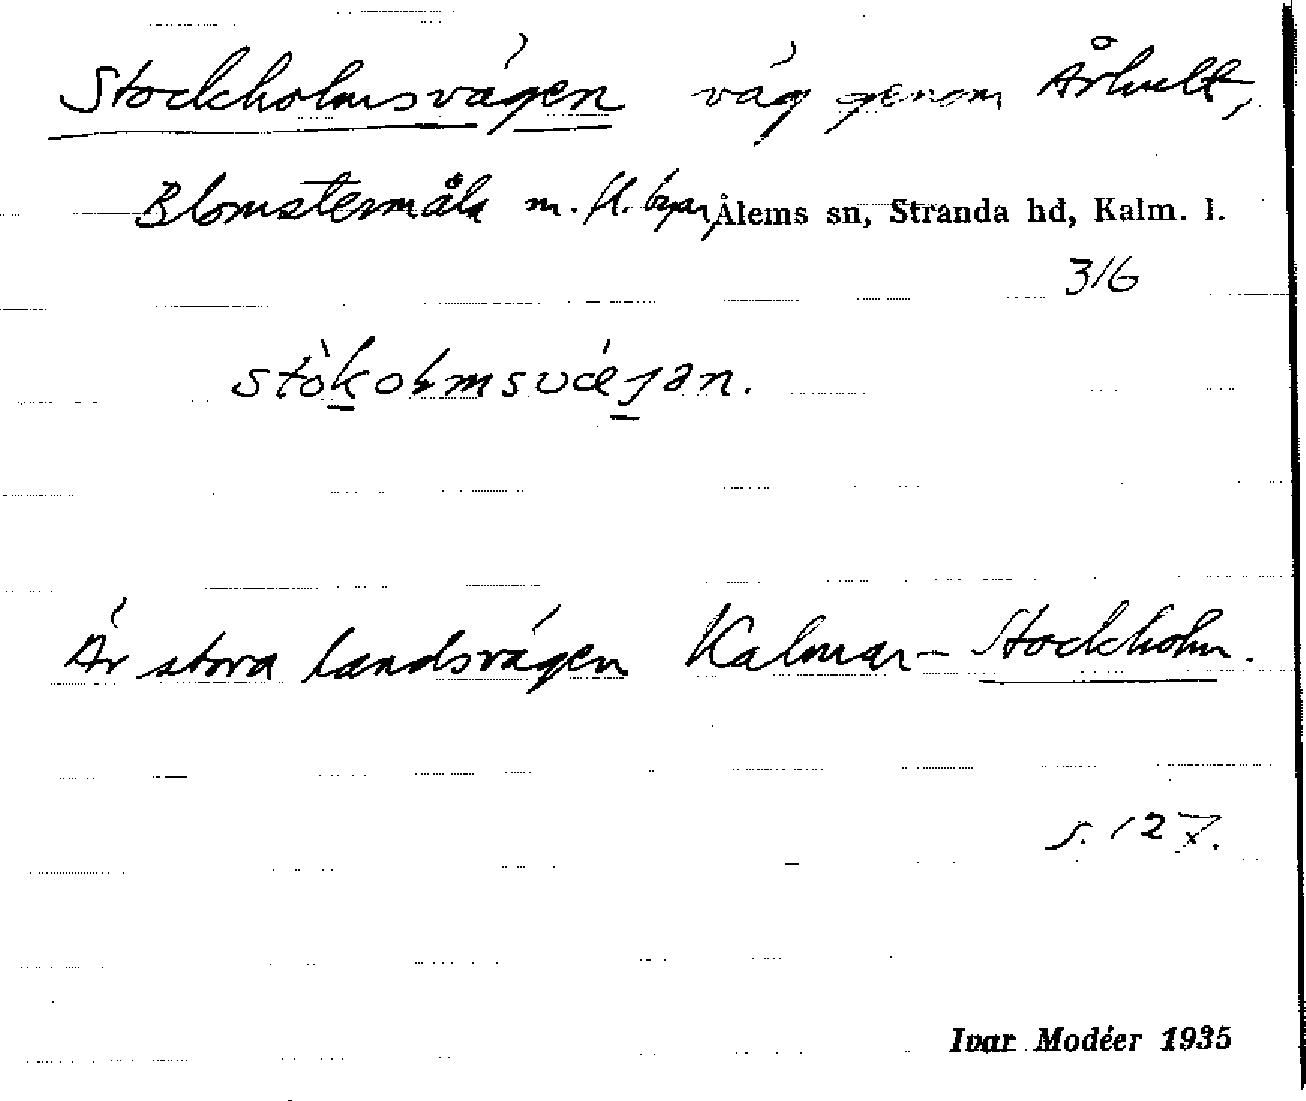 Stockholmsvägen väg genom Århult,
Blomstermåla m. fl. byar, Ålems sn, Stranda hd, Kalm. l.
316
stòkolmsvǽjan.
Är stora landsvägen Kalmar–Stockholm.
s. 127.
Ivar Modéer 1935